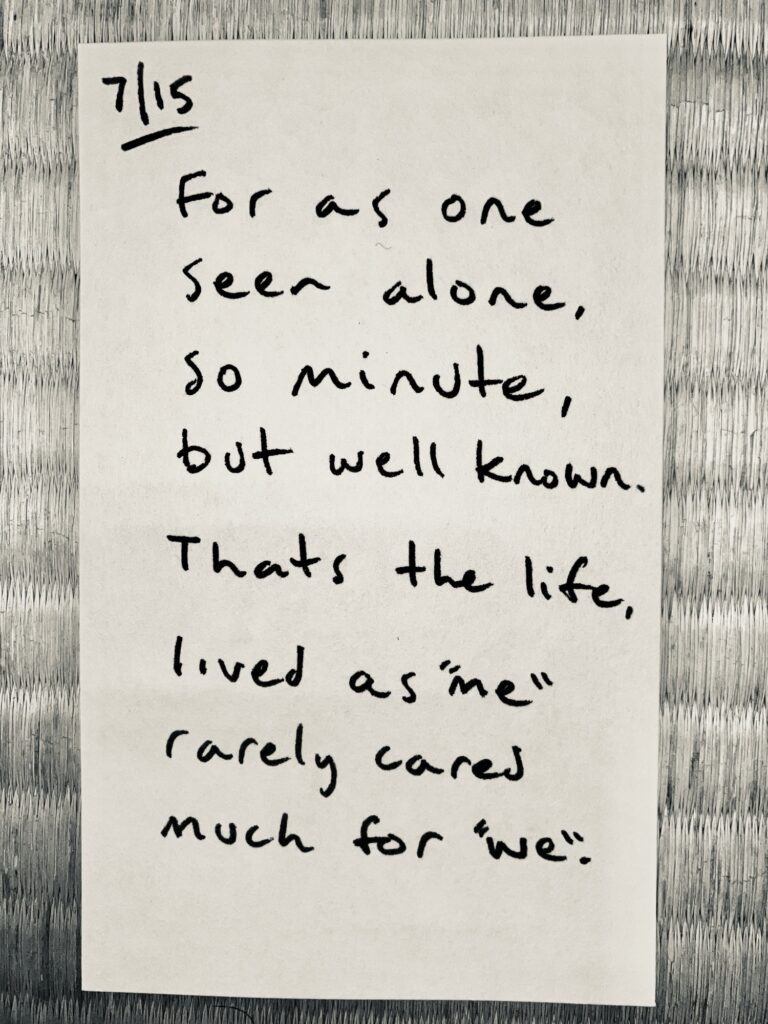 7/15
For as one
seen alone,
so minute,
but well known.
Thats the life,
lived as "me"
rarely cared
much for "we".